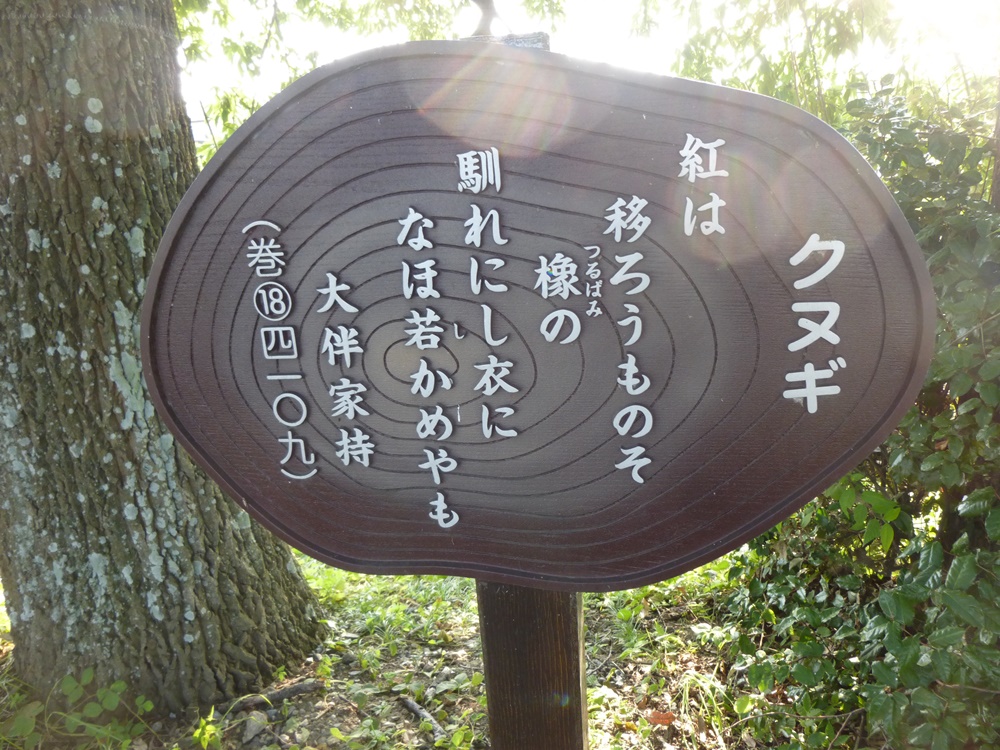 クヌギ
紅は
移ろうものそ
橡の
つるばみ
馴れにし衣に
なほ若かめやも
し
大伴家持
（巻⑱四一〇九）